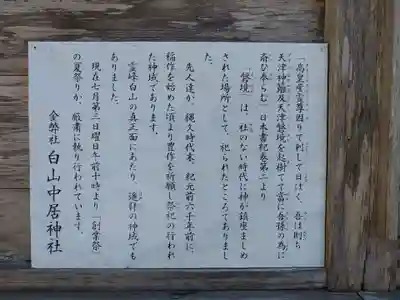 「高皇産霊尊因りて勅して曰はく、吾は則ち
天津神籬及天津磐境を起樹てて當に吾孫の為に
斎ひ奉らむ」日本書紀巻第二より
「磐境」は、社のない時代に神が鎮座ましめ
された場所として、祀られたところでありまし
た。
先人達が、縄文時代末、紀元前六千年前に、
稲作を始めた頃より豊作を祈願し祭祀の行われ
た神域であります。
霊峰白山の真正面にあたり、遥拝の神域でも
ありました。
現在七月第三日曜日午前十時より「創業祭」
の夏祭りが、厳粛に執り行われています。
金幣社 白山中居神社